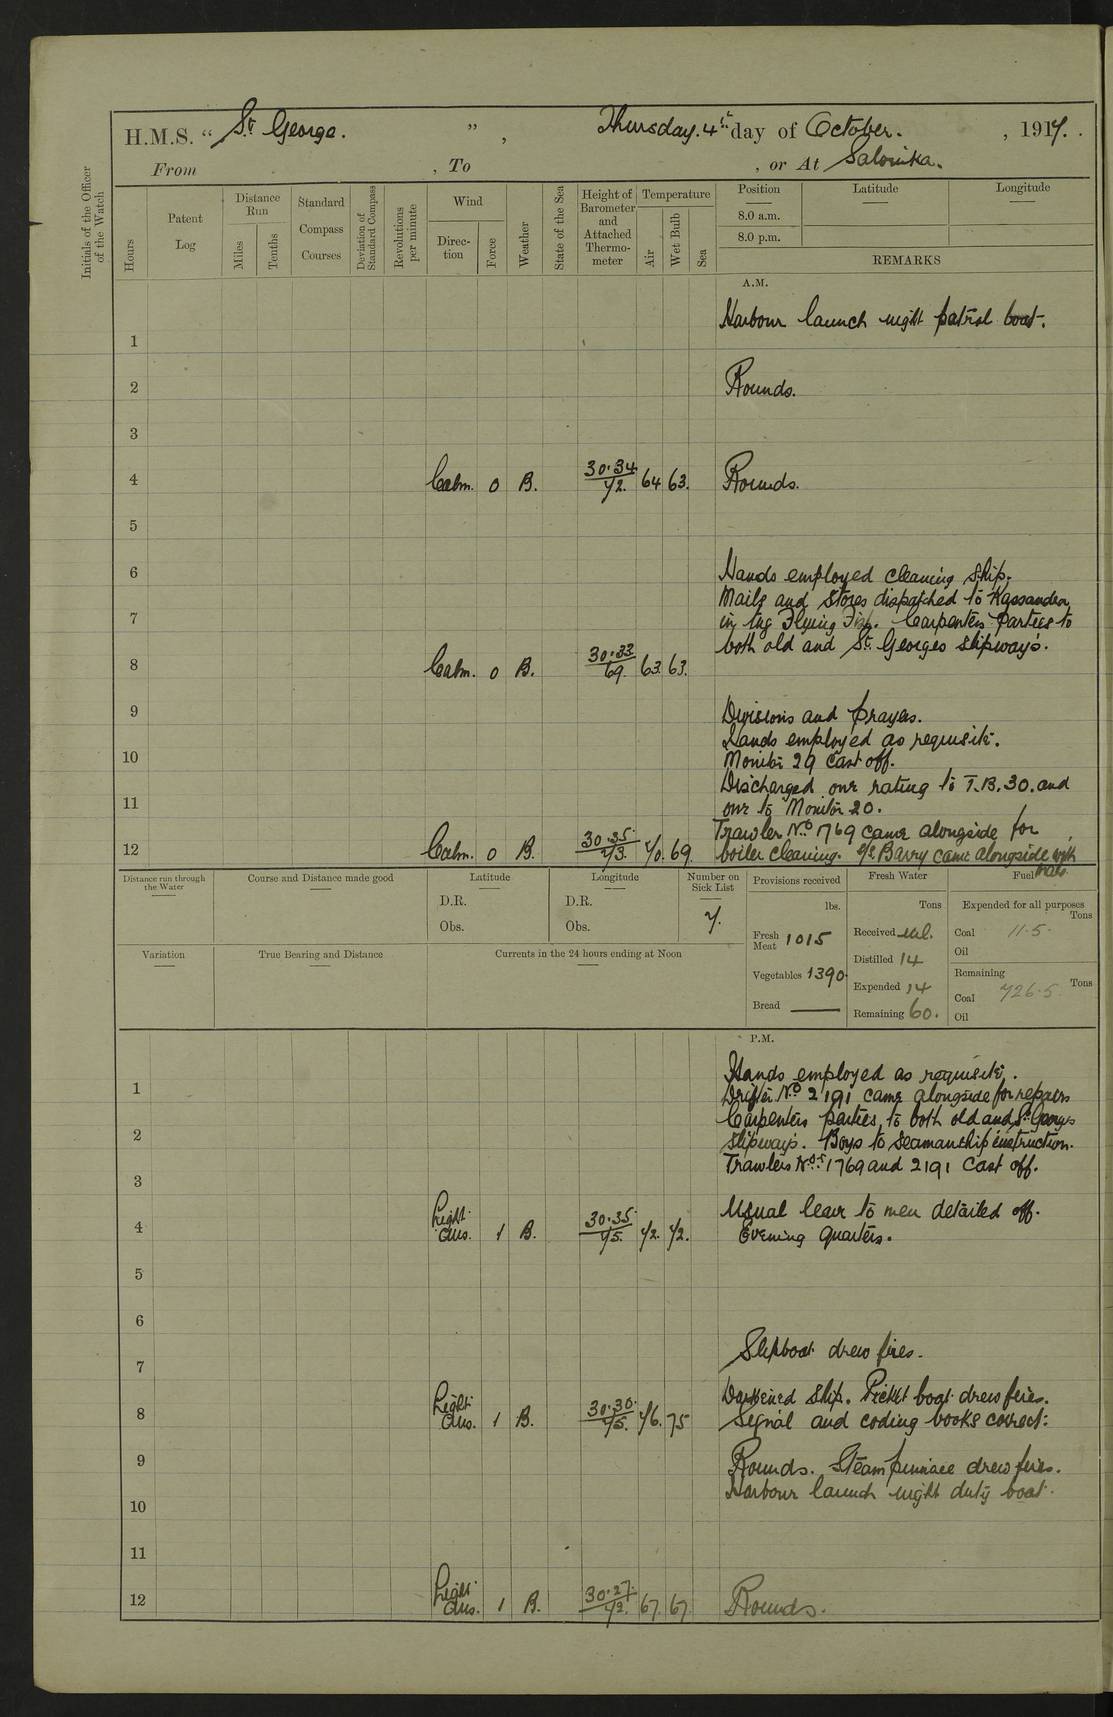 H.M.S. “ St George. ” , Thursday. 4th day of October. , 1917.
From , To , or At Salonika.
Initials of the Officer of the Watch
Hours
Patent Log
Distance Run
Miles
Tenths
Standard Compass Courses
Deviation of Standard Compass
Revolutions per minute
Wind
Direc-tion
Force
Weather
State of the Sea
Height of Barometer and Attached Thermo-meter
Temperature
Air
Wet Bulb
Sea
Position
8.0 a.m.
8.0 p.m.
Latitude
Longitude
REMARKS
A.M.
Harbour launch night patrol boat.
1
2 Rounds.
3
4 Calm. 0 B. 30.34 72. 64 63. Rounds.
5
6 Hands employed cleaning ship.
Mails and Stores dispatched to Kassandra
7 in tug Flying Fish. Carpenters parties to
both old and St. Georges slipways.
8 Calm. 0 B. 30.33 69. 63. 63.
9 Divisions and prayers.
Hands employed as requisite.
10 Monitor 29 cast off.
Discharged one rating to T.B. 30. and
11 one to Monitor 20.
Trawler No 1769 came alongside for
12 Calm. 0 B. 30.35. 73. 70. 69. boiler cleaning. S/S Barry came alongside with
mails
Distance run through the Water
Course and Distance made good
Latitude
D.R.
Obs.
Longitude
D.R.
Obs.
Number on Sick List
7.
Provisions received
lbs.
Fresh Meat 1015
Vegetables 1390.
Bread —
Fresh Water
Tons
Received nil.
Distilled 14
Expended 14
Remaining 60.
Fuel
Expended for all purposes
Tons
Coal 11.5.
Oil
Remaining
Tons
Coal 726.5
Oil
Variation
True Bearing and Distance
Currents in the 24 hours ending at Noon
P.M.
Hands employed as requisite.
1 Drifter No 2191 came alongside for repairs
Carpenters parties to both old and St Georges
2 slipways. Boys to seamanship instruction.
Trawlers Nos 1769 and 2191 cast off.
3
Usual leave to men detailed off.
4 Light airs. 1 B. 30.35. 75. 72. 72. Evening quarters.
5
6
7 Slipboat drew fires.
Darkened ship. Picket boat drew fires.
8 Light airs. 1 B. 30.30. 75. 76. 75 Signal and coding books correct.
9 Rounds. Steam pinnace drew fires.
Harbour launch night duty boat.
10
11
12 Light airs. 1 B. 30.27. 72. 67. 67. Rounds.